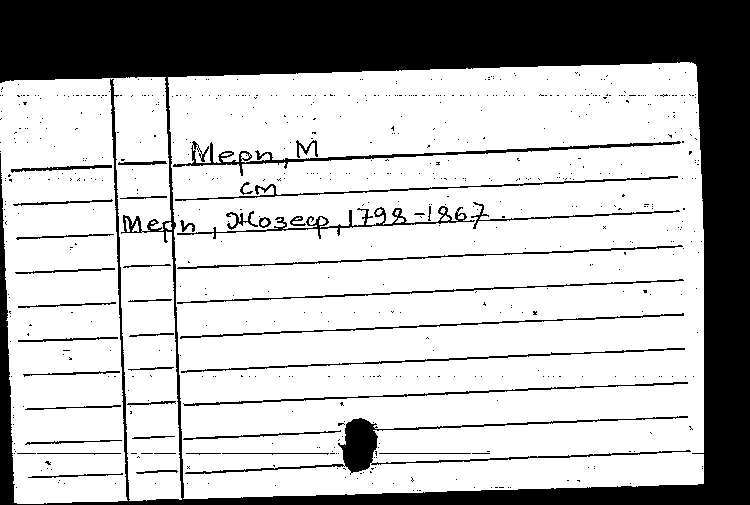 Мери, М
см
Мери, Жозеф, 1798-1867.